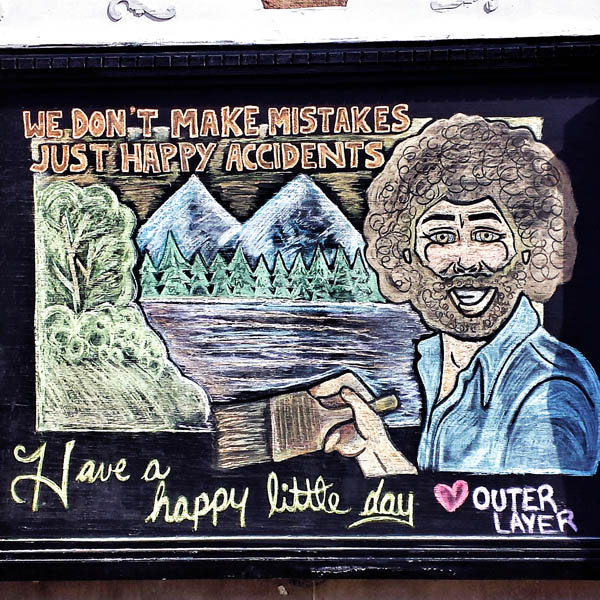 WE DON'T MAKE MISTAKES
JUST HAPPY ACCIDENTS
Have a
happy little day
OUTER
LAYER